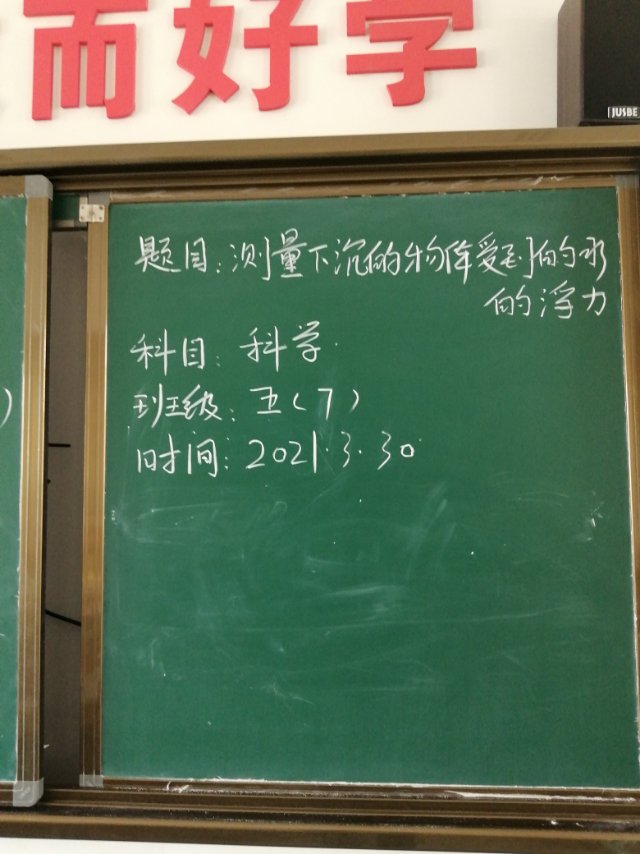 而好学
JUSBE
题目:测量下沉的物体受到的水
的浮力
科目:科学
班级:五(7)
时间:2021.3.30
)